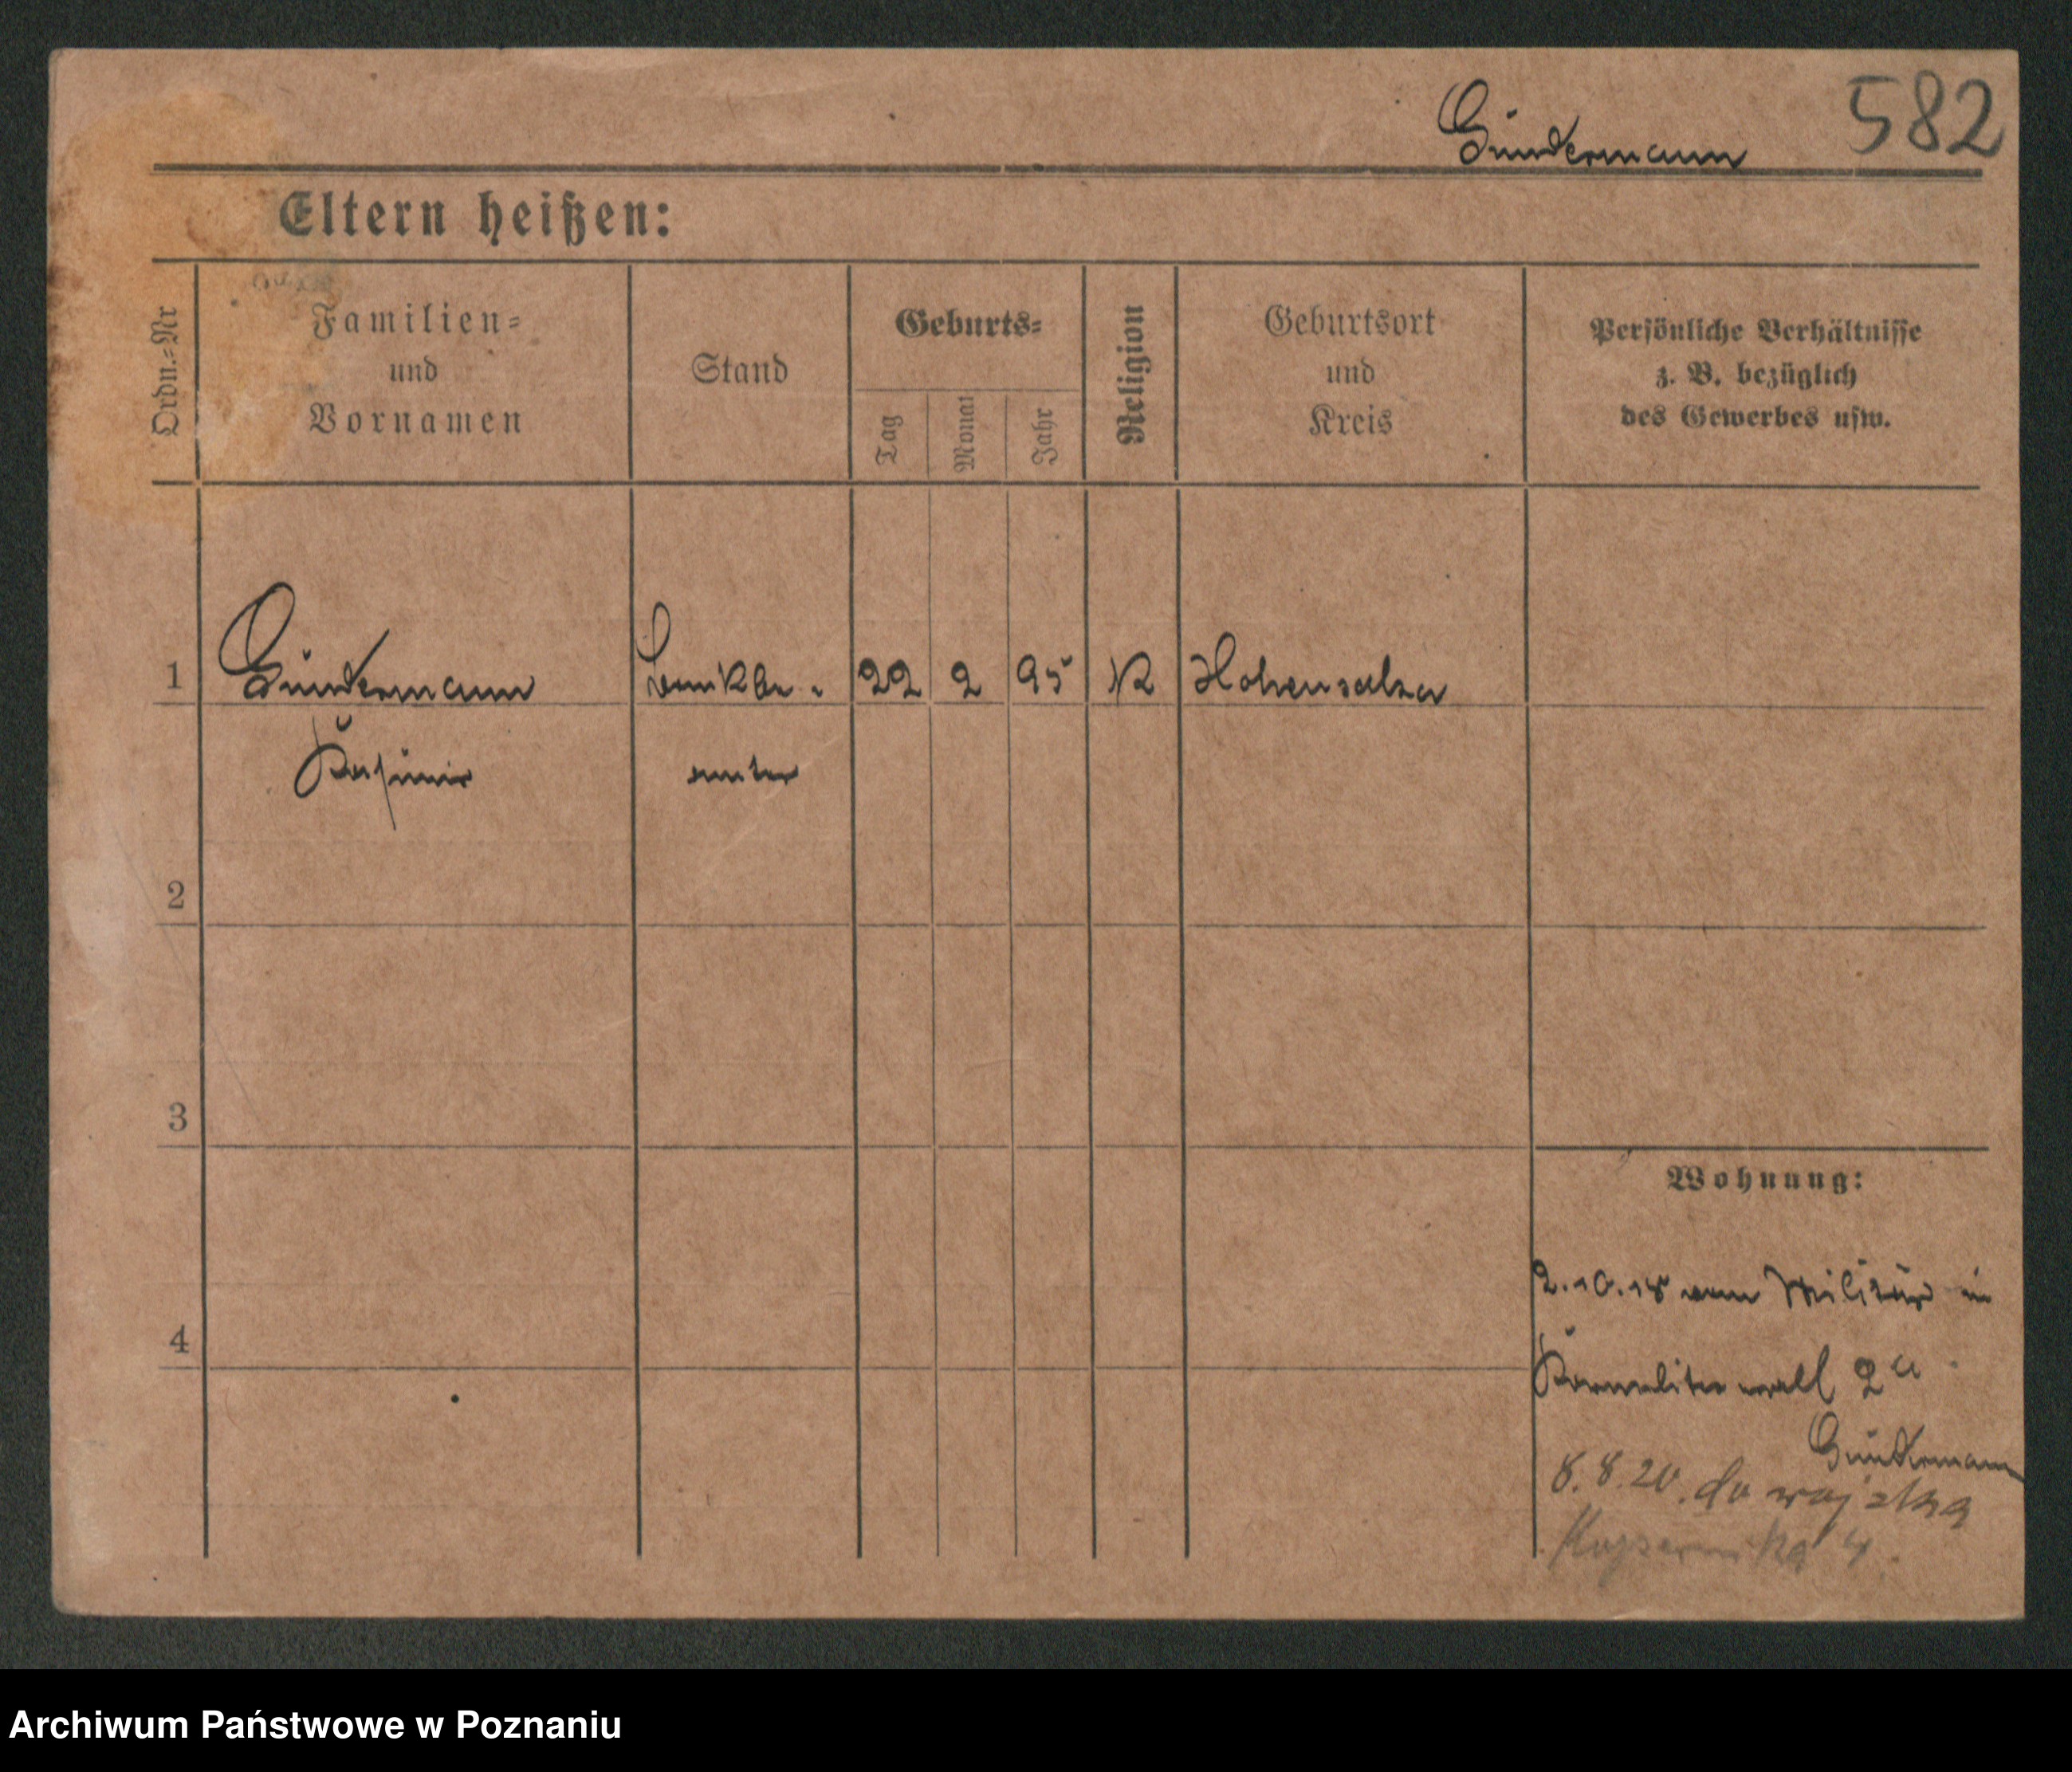 Gundermann 582
Eltern heißen:
Ordn.=Nr
Familien=
und
Vornamen
Stand
Geburts=
Tag
Monat
Jahr
Religion
Geburtsort
und
Kreis
Persönliche Verhältnisse
z. B. bezüglich
des Gewerbes usw.
1 Gundermann 22 2 95 K Hohensalza
Kasimir
2
3
Wohnung:
2.10.18 vom Militär in
4
Karmeliterwall 2a
Gundermann
8.8.20. do wojska
4
Archiwum Państwowe w Poznaniu